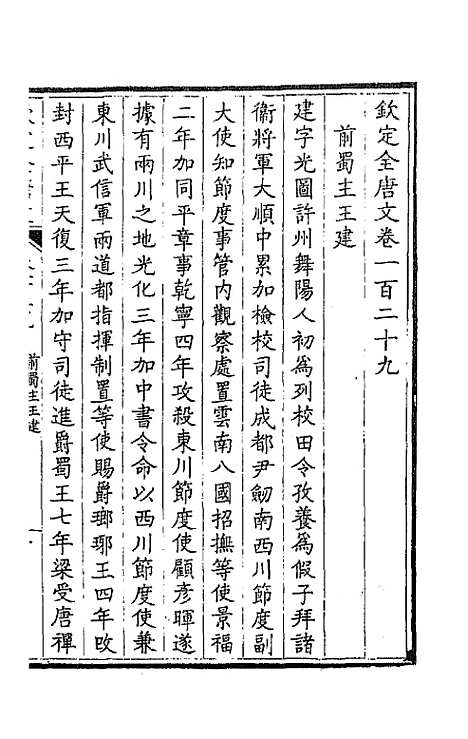 欽定全唐文卷一百二十九
前蜀主王建
建字光圖許州舞陽人初爲列校田令孜養爲假子拜諸
衞將軍大順中累加檢校司徒成都尹劒南西川節度副
大使知節度事管內觀察處置雲南八國招撫等使景福
二年加同平章事乾寧四年攻殺東川節度使顧彥暉遂
據有兩川之地光化三年加中書令命以西川節度使兼
東川武信軍兩道都指揮制置等使賜爵瑯琊王四年改
封西平王天復三年加守司徒進爵蜀王七年梁受唐禪
前蜀主王建
一